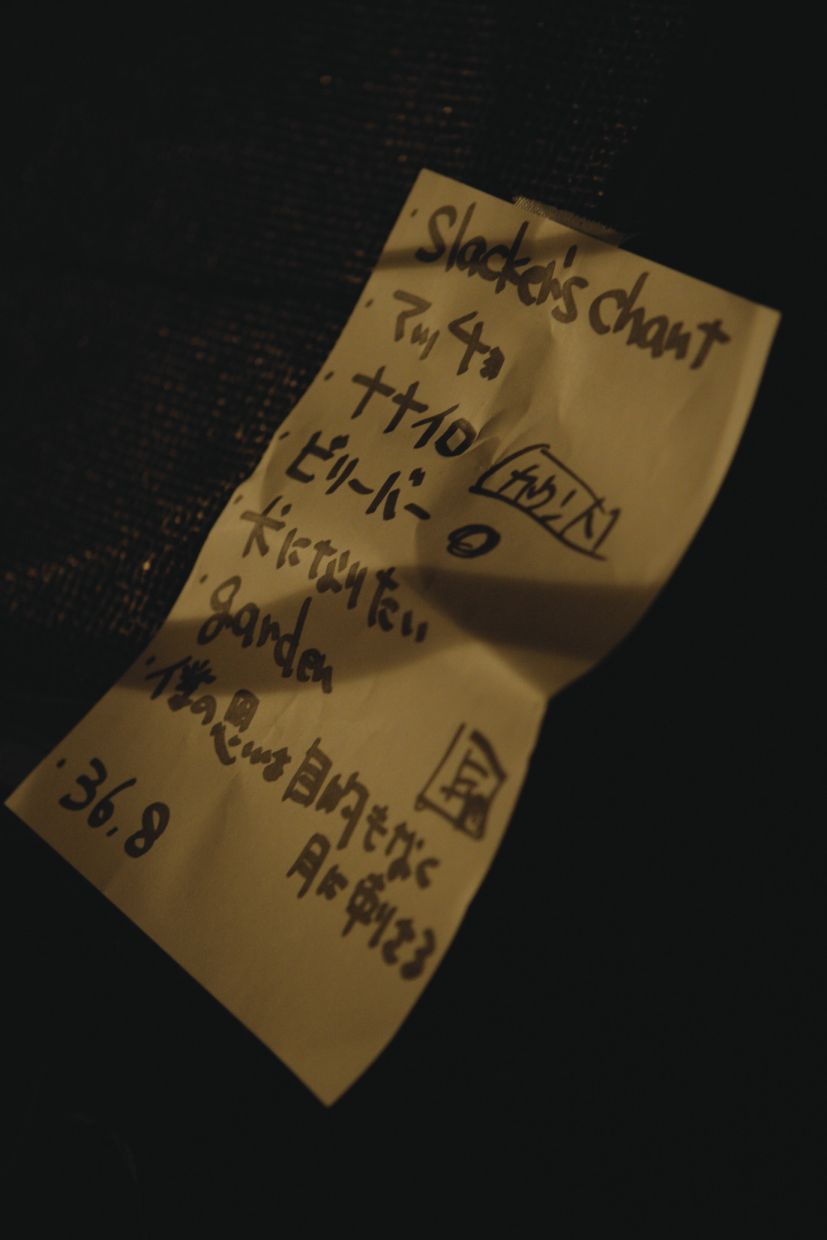 ・Slacker's chant
・マッチョ
・ナナイロ
・ビリーバー
・犬になりたい
・garden
・僕の思いは目的もなく
月に刺さる
・36.8